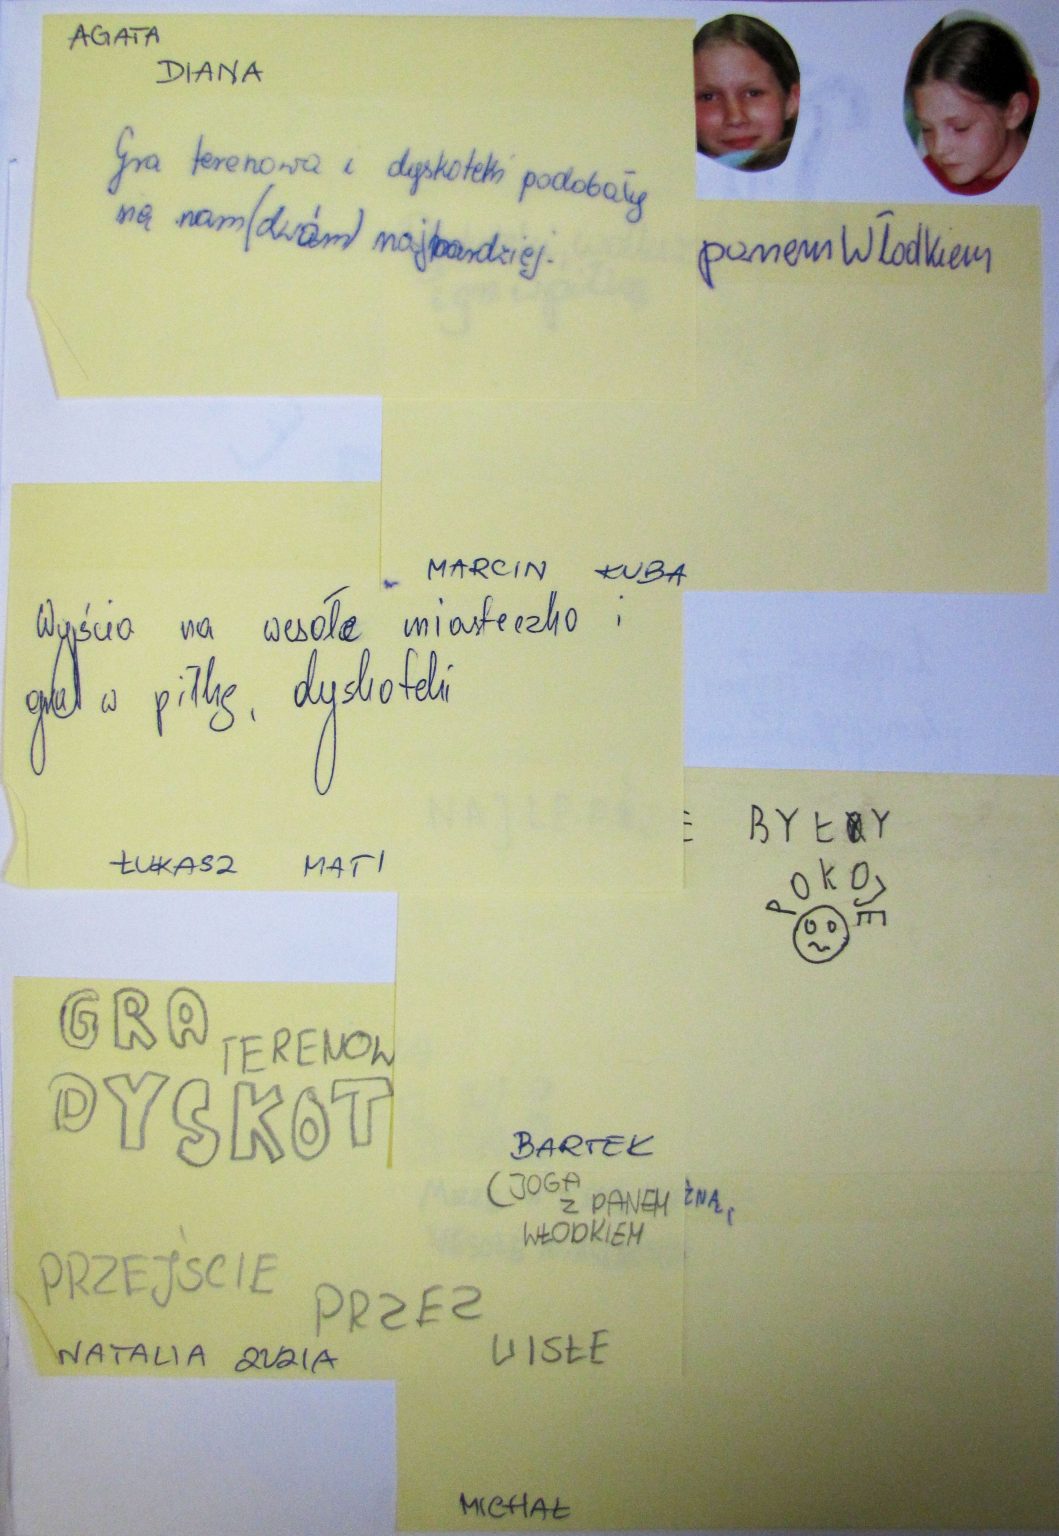 AGATA
DIANA
Gra terenowa i dyskoteki podobały
się nam (dwóm) najbardziej.
panem Włodkiem
MARCIN KUBA
Wyjścia na wesołe miasteczko i
gra w piłkę, dyskoteki
E BYŁY
POKOJE
ŁUKASZ MATI
GRA
TERENOW
DYSKOT
BARTEK
(JOGA
Z PANEM
WŁODKIEM
ŻNĄ,
PRZEJŚCIE
PRZEZ
WISŁE
NATALIA ZUZIA
MICHAŁ